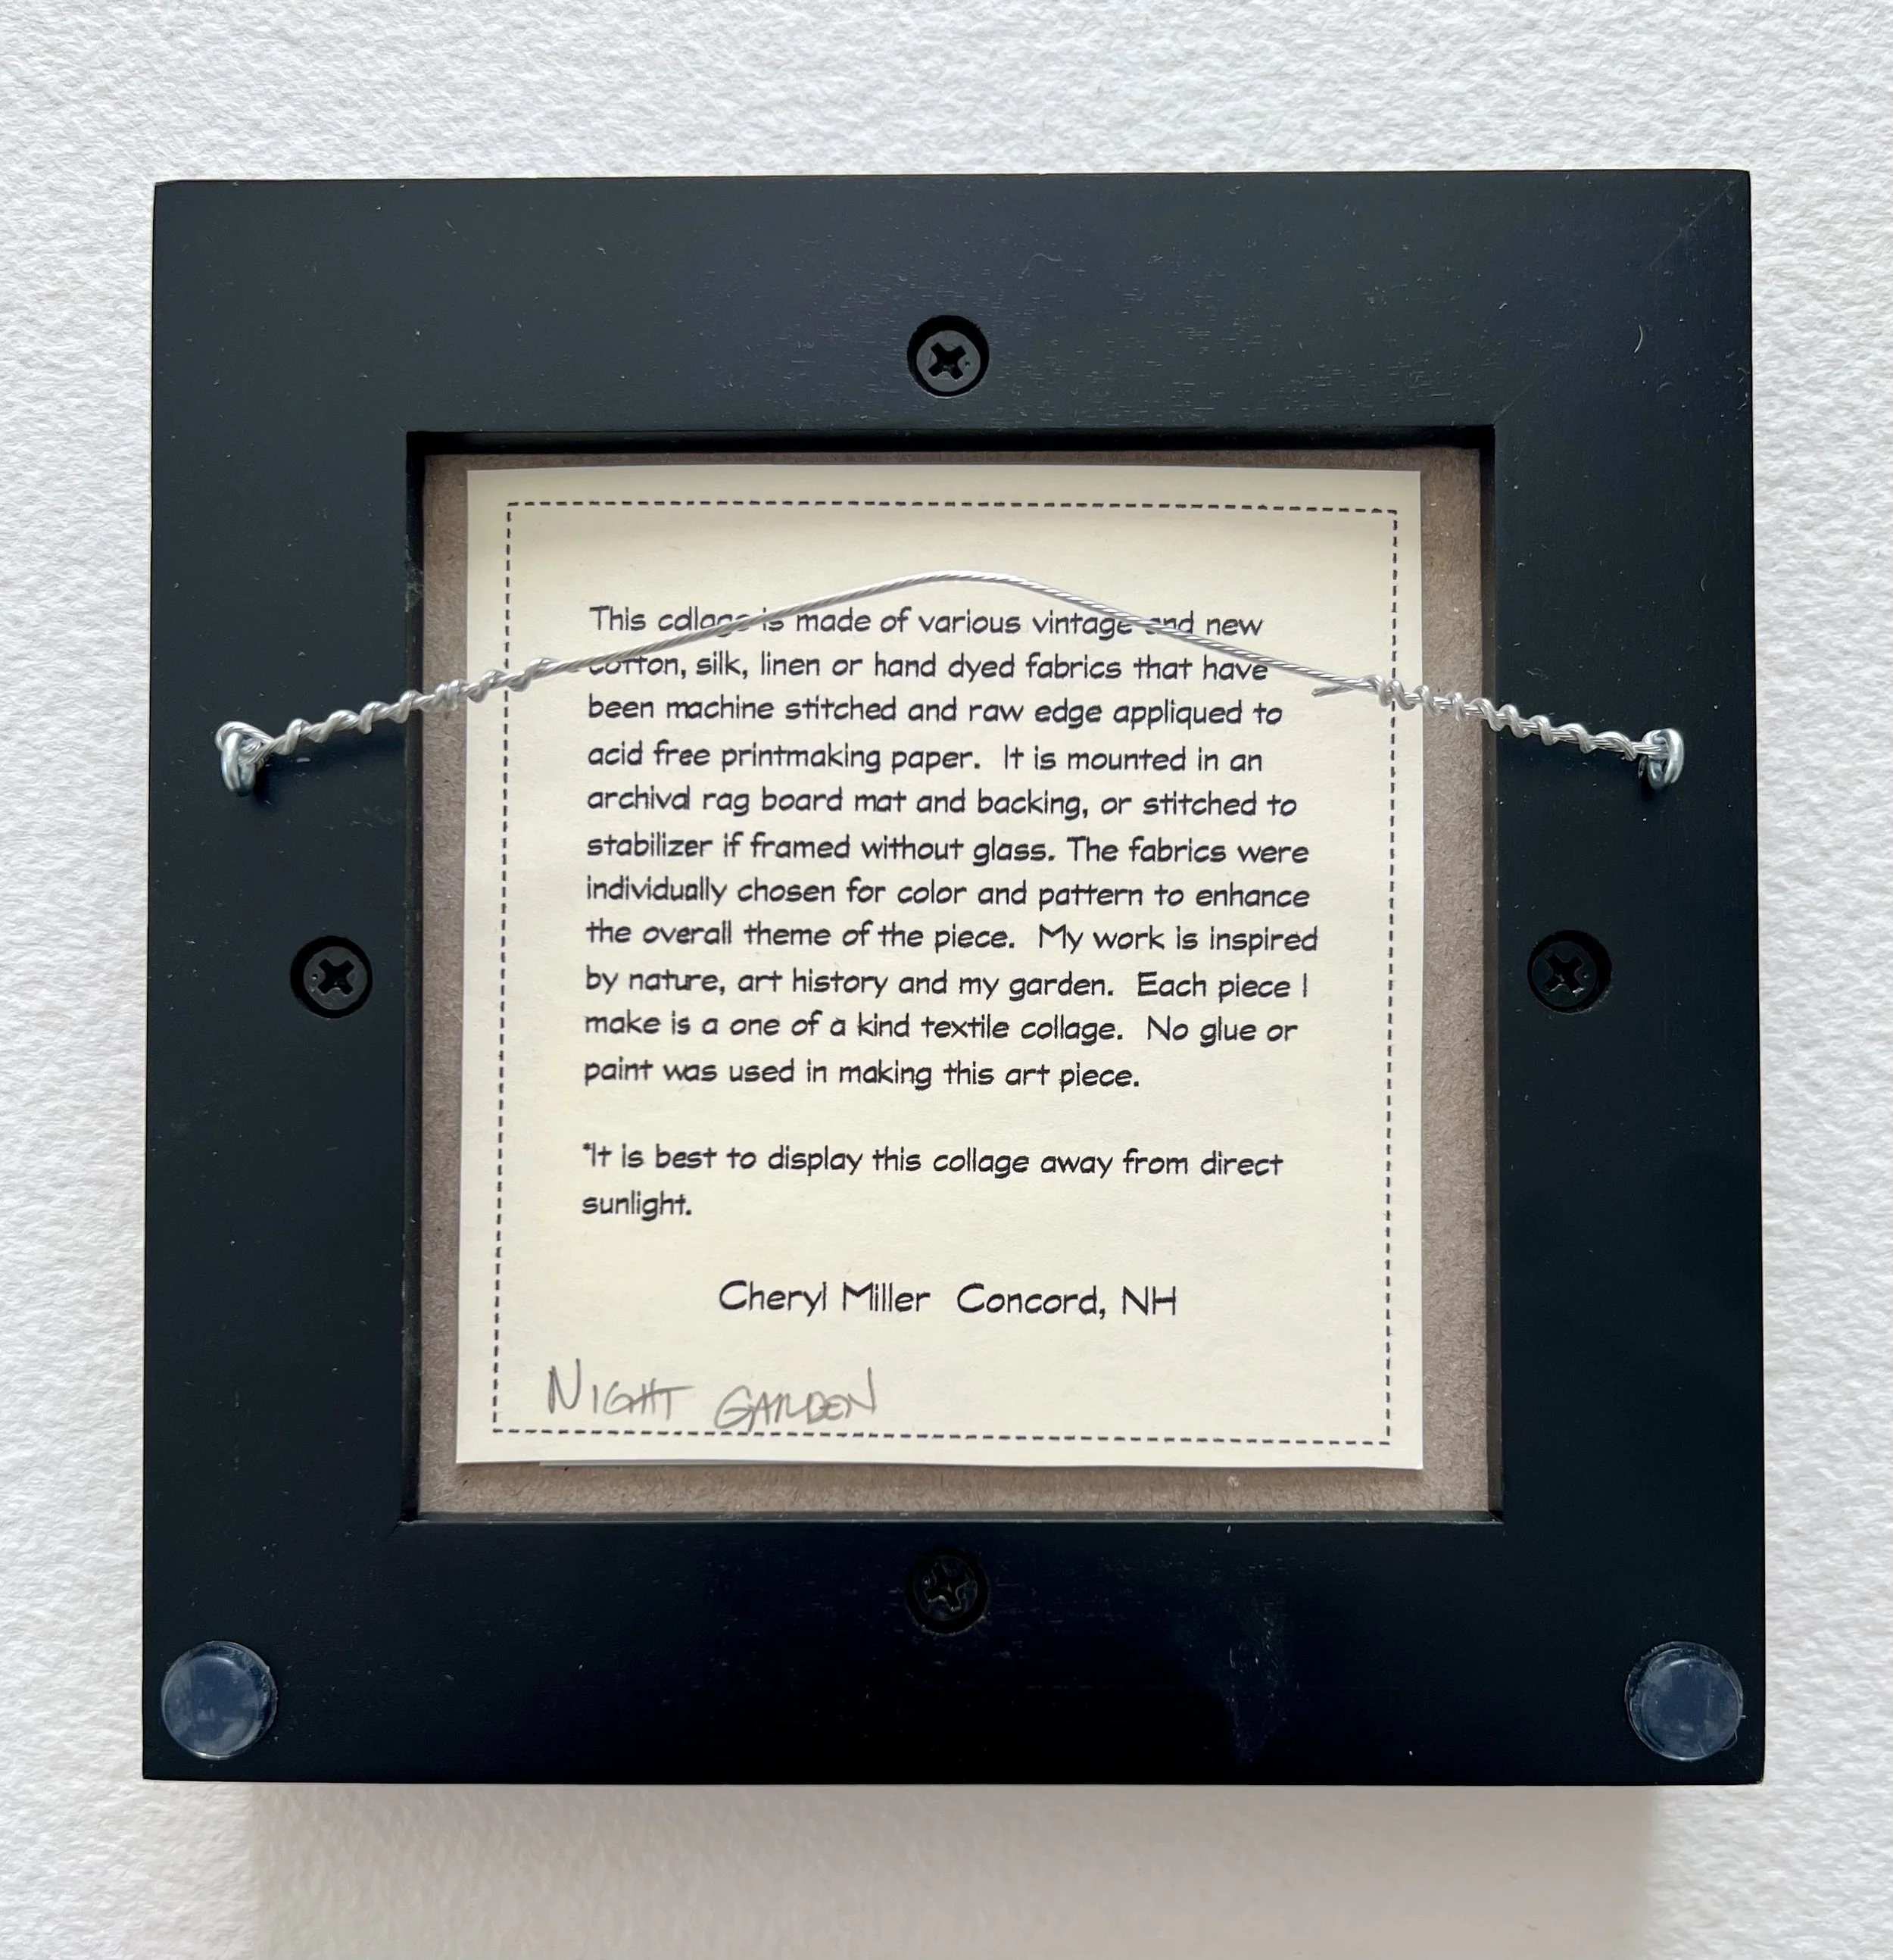 This collage is made of various vintage and new
cotton, silk, linen or hand dyed fabrics that have
been machine stitched and raw edge appliqued to
acid free printmaking paper. It is mounted in an
archival rag board mat and backing, or stitched to
stabilizer if framed without glass. The fabrics were
individually chosen for color and pattern to enhance
the overall theme of the piece. My work is inspired
by nature, art history and my garden. Each piece I
make is a one of a kind textile collage. No glue or
paint was used in making this art piece.
*It is best to display this collage away from direct
sunlight.
Cheryl Miller Concord, NH
NIGHT GARDEN